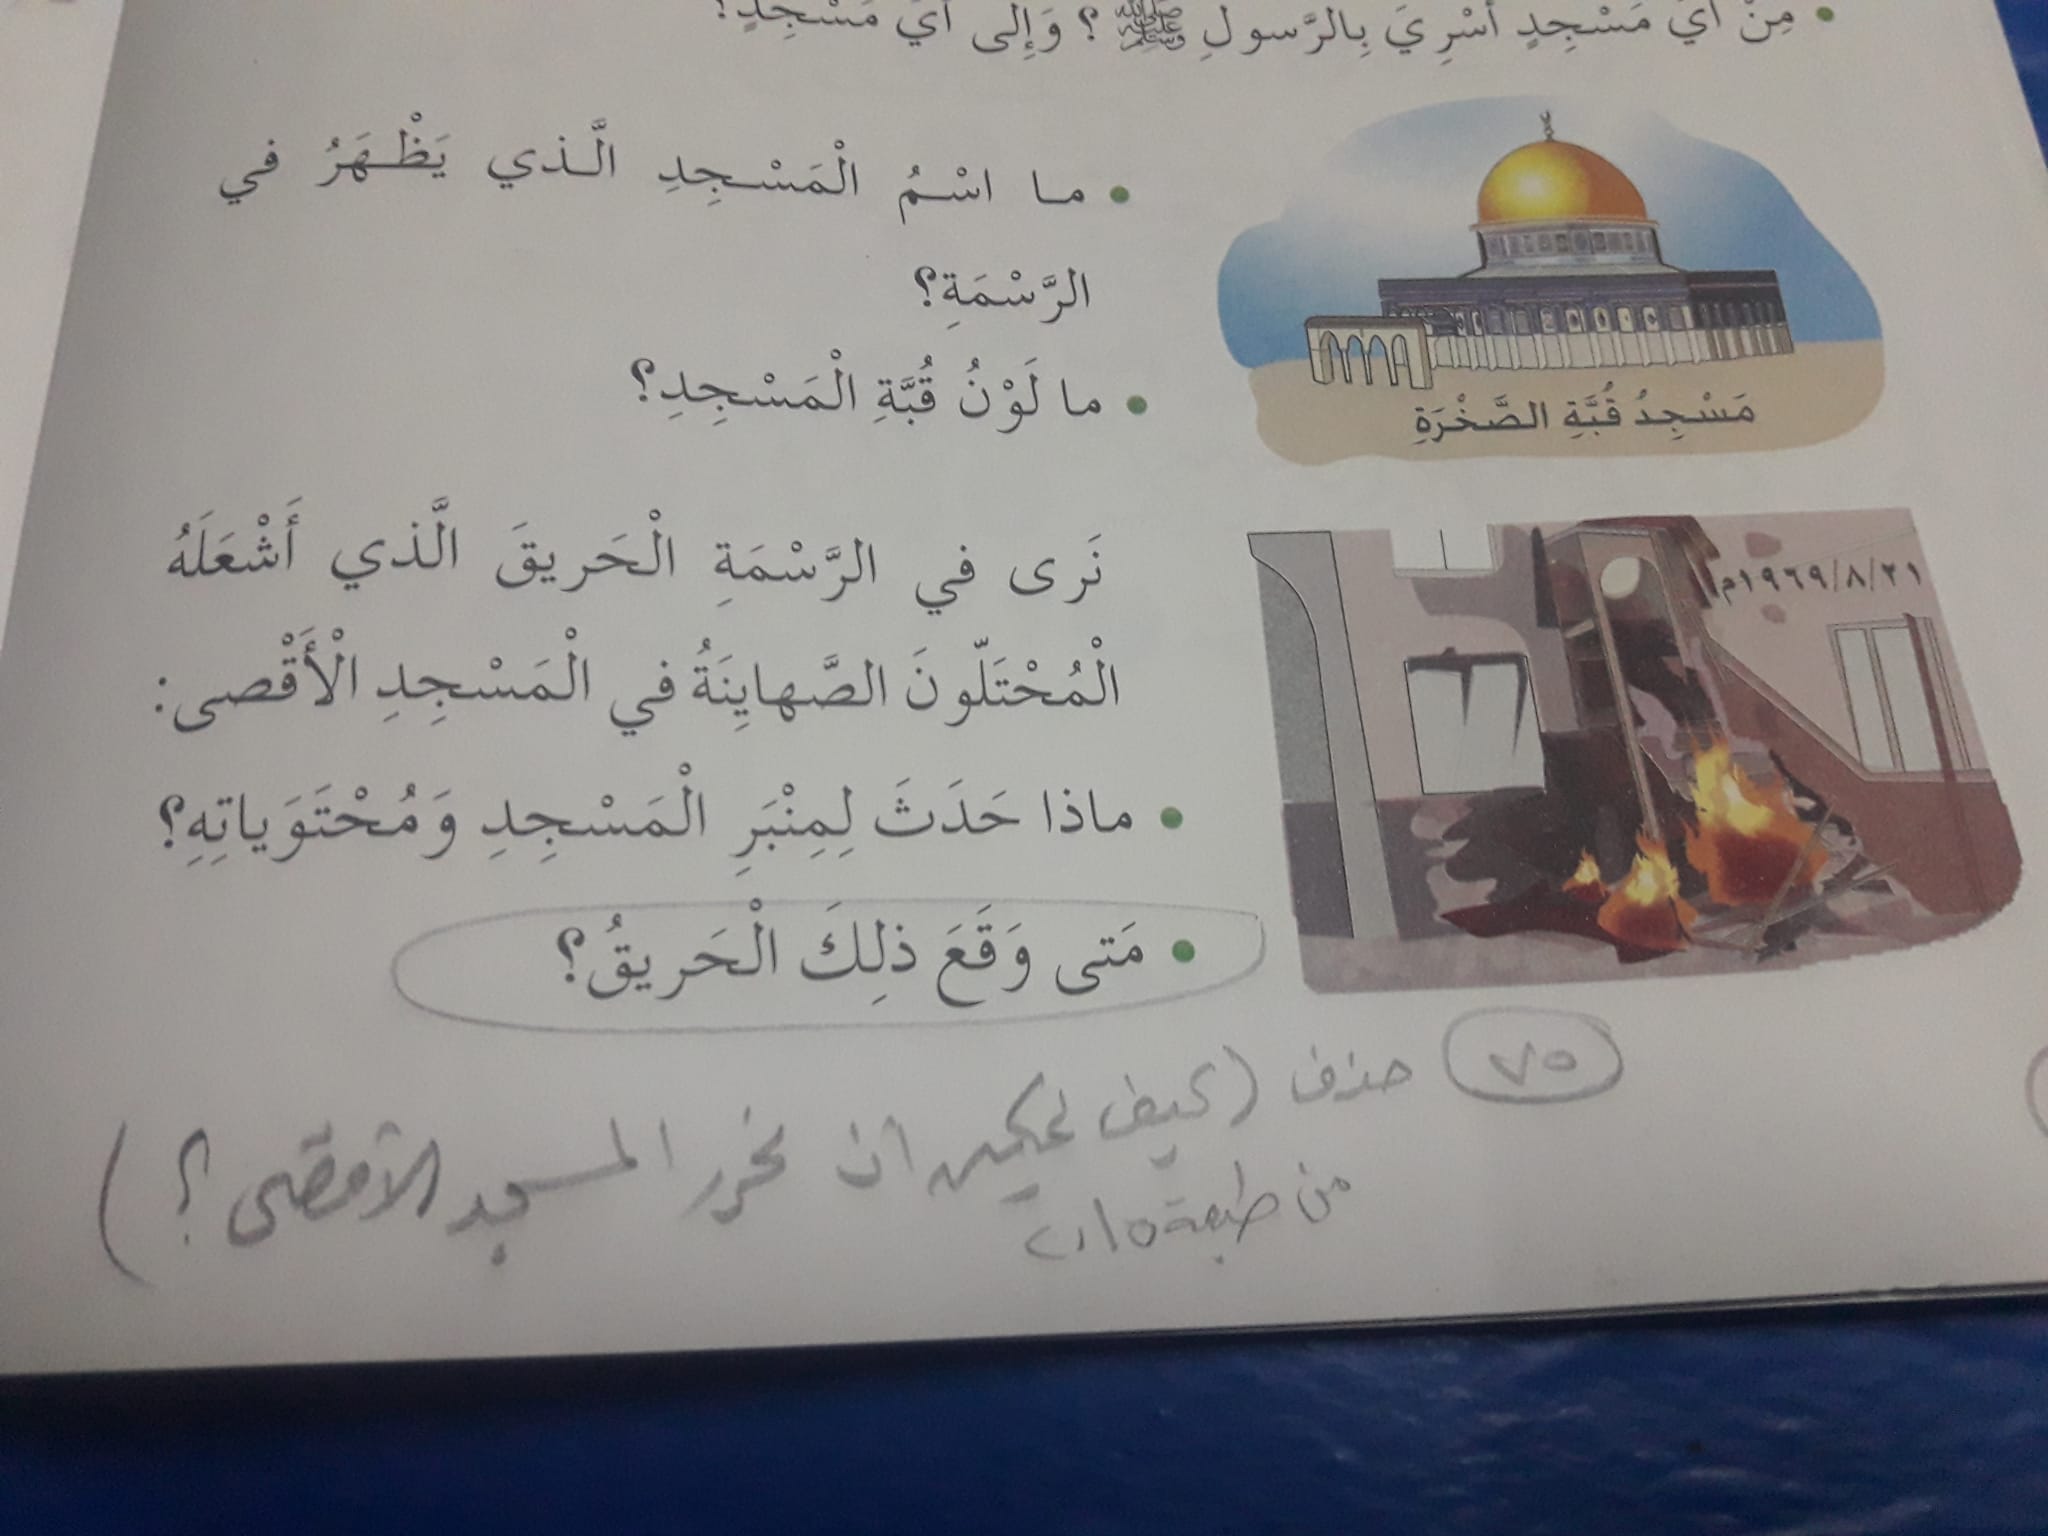 • مِنْ أَيِّ مَسْجِدٍ أُسْرِيَ بِالرَّسولِ ﷺ ؟ وَإِلى أَيِّ مَسْجِدٍ؟
• ما اسْمُ الْمَسْجِدِ الَّذي يَظْهَرُ في
الرَّسْمَةِ؟
• ما لَوْنُ قُبَّةِ الْمَسْجِدِ؟
مَسْجِدُ قُبَّةِ الصَّخْرَةِ
نَرى في الرَّسْمَةِ الْحَريقَ الَّذي أَشْعَلَهُ
الْمُحْتَلّونَ الصَّهايِنَةُ في الْمَسْجِدِ الْأَقْصى:
٢١/٨/١٩٦٩م
• ماذا حَدَثَ لِمِنْبَرِ الْمَسْجِدِ وَمُحْتَوَياتِهِ؟
• مَتى وَقَعَ ذلِكَ الْحَريقُ؟
٧٥ حذف (كيف يمكن أن نحرر المسجد الأقصى؟)
من طبعة ٢٠١٥